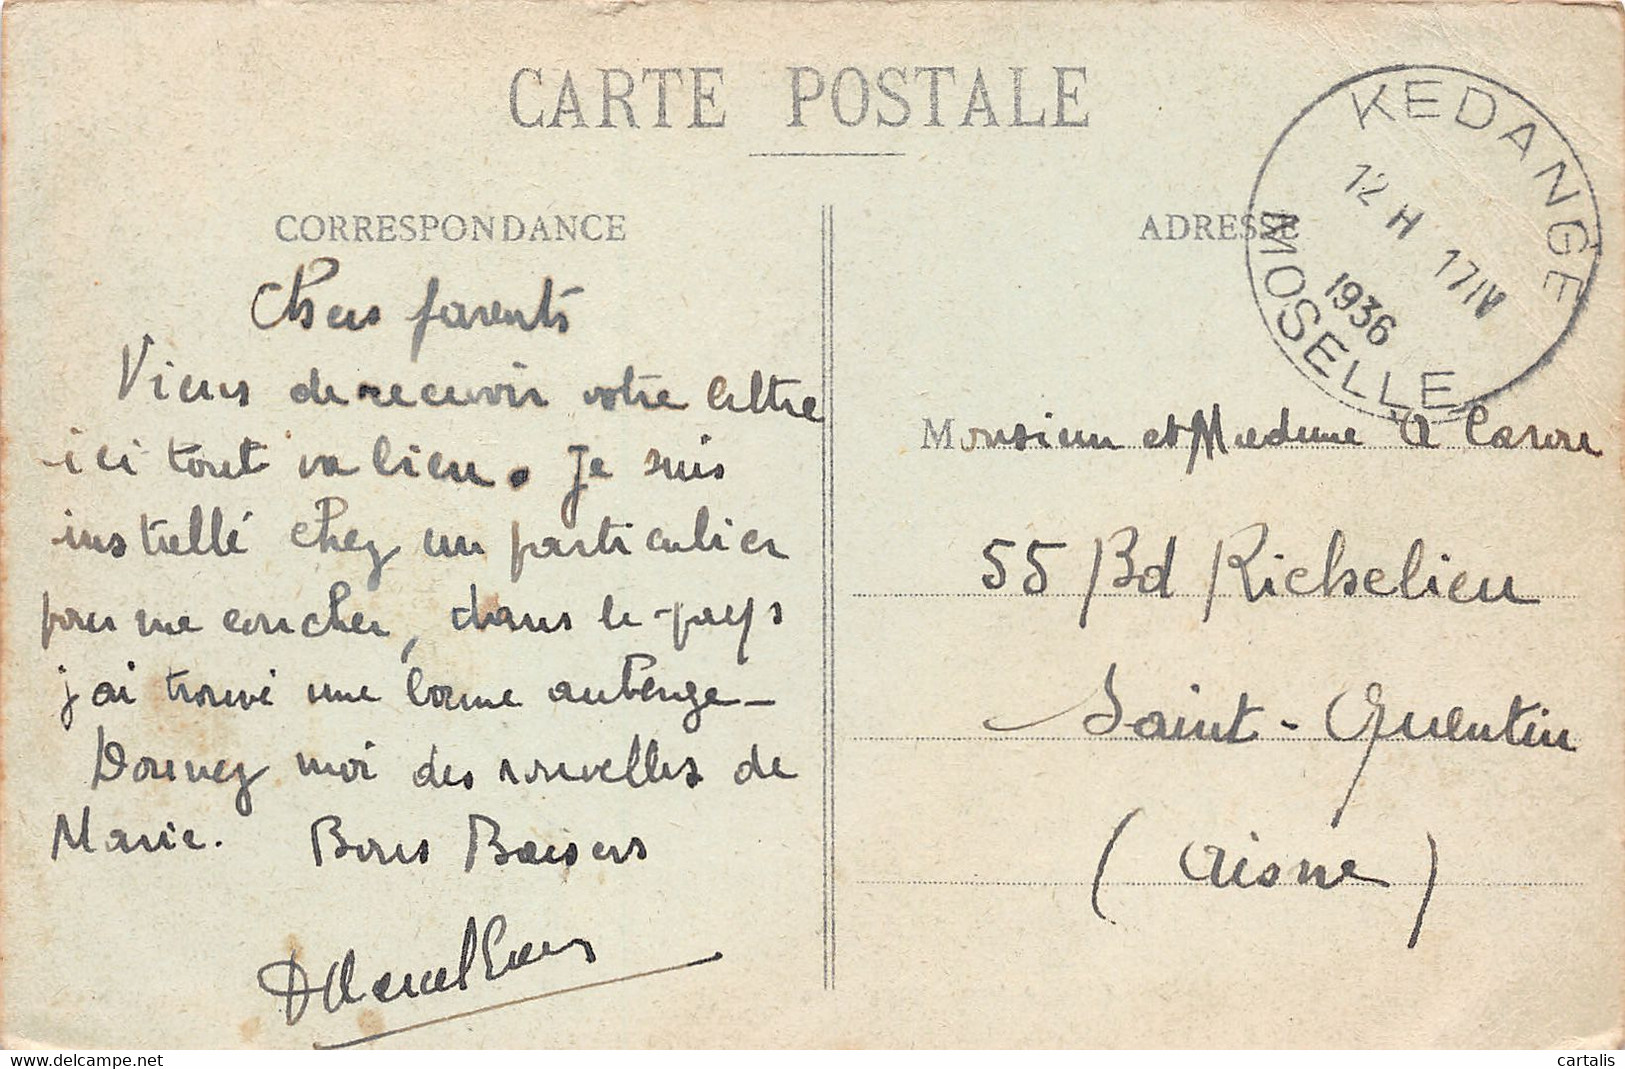 CARTE POSTALE
CORRESPONDANCE
Chers parents
Viens de recevoir votre lettre
ici tout va bien. Je suis
installé chez un particulier
pour me coucher, dans le pays
j'ai trouvé une bonne auberge_
Donnez moi des nouvelles de
Marie. Bons Baisers
ADRESSE
KEDANGE
12 H 17 IV
1936
MOSELLE
Monsieur et Madame A
55 Bd Richelieu
Saint-Quentin
(Aisne)
cartalis